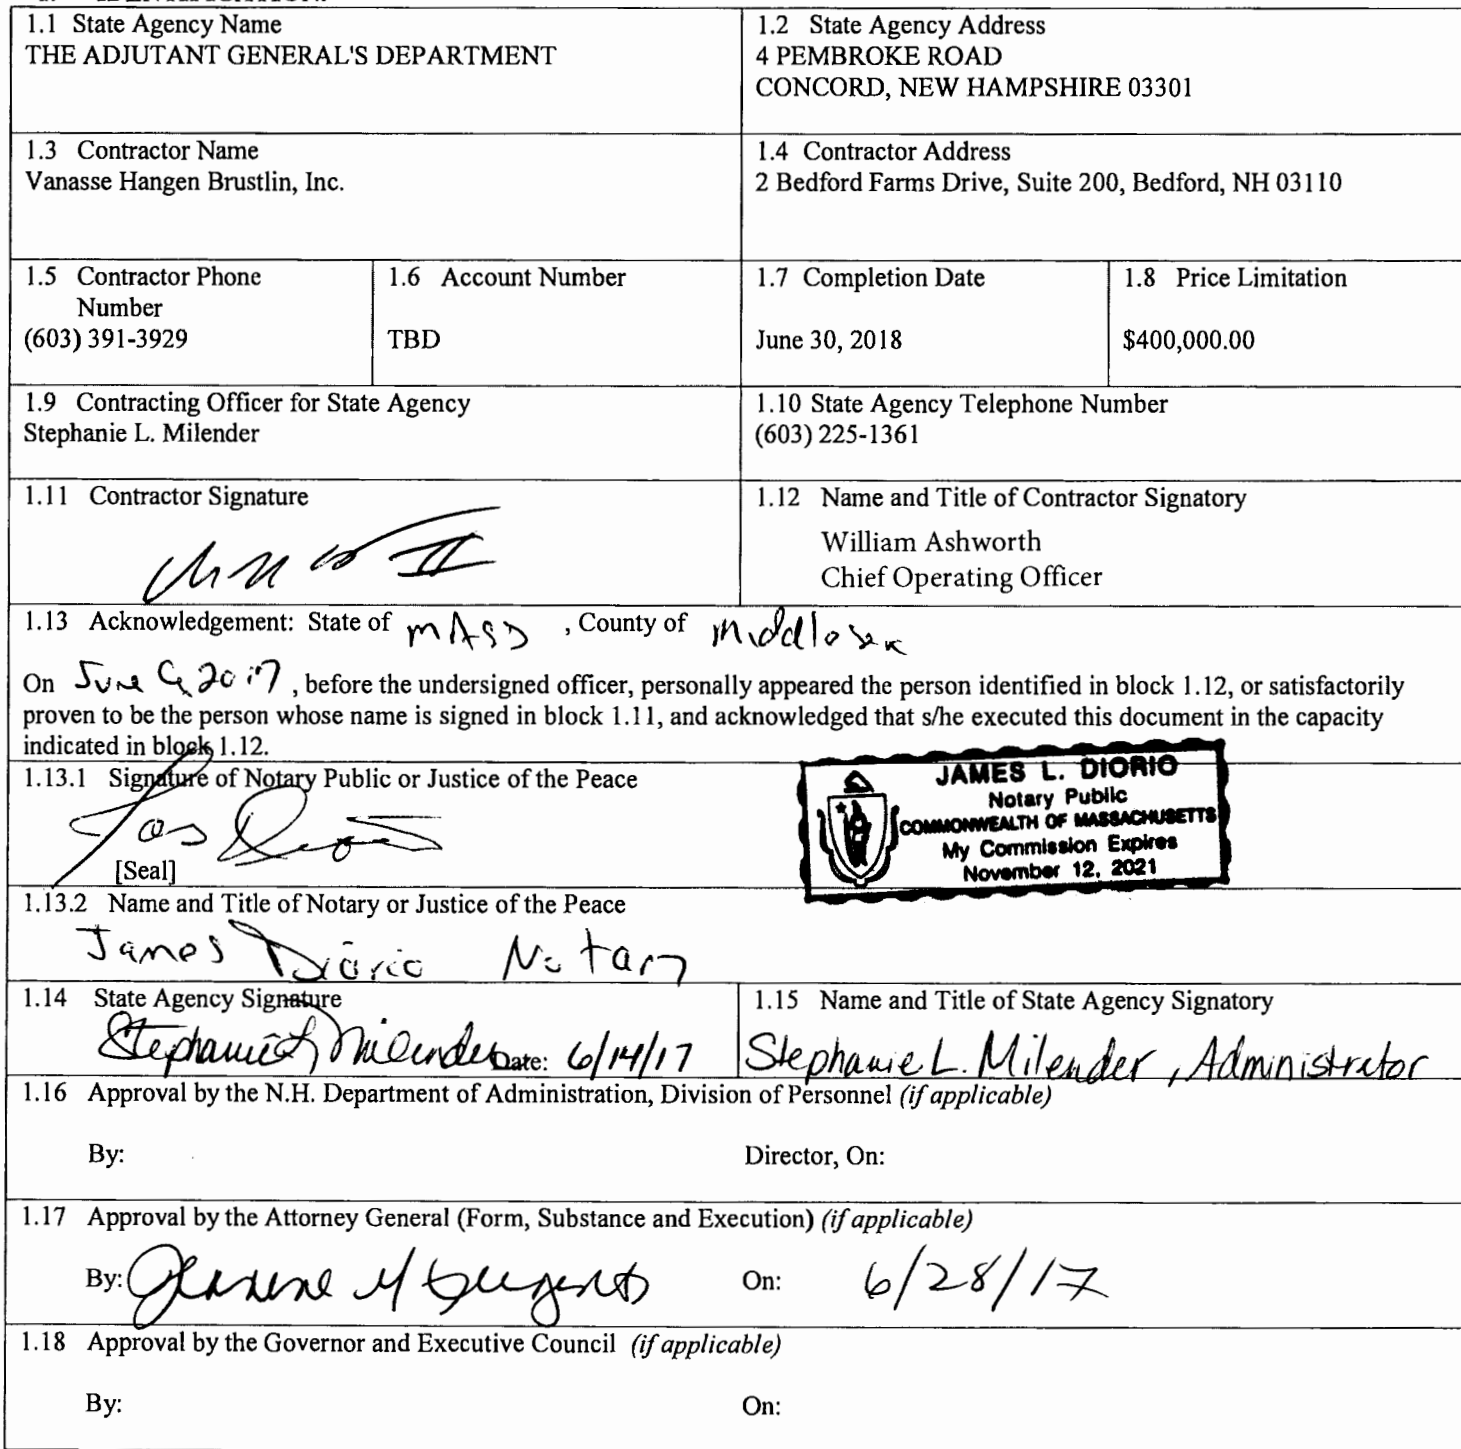 1.1 State Agency Name
THE ADJUTANT GENERAL'S DEPARTMENT
1.2 State Agency Address
4 PEMBROKE ROAD
CONCORD, NEW HAMPSHIRE 03301
1.3 Contractor Name
Vanasse Hangen Brustlin, Inc.
1.4 Contractor Address
2 Bedford Farms Drive, Suite 200, Bedford, NH 03110
1.5 Contractor Phone
Number
(603) 391-3929
1.6 Account Number
TBD
1.7 Completion Date
June 30, 2018
1.8 Price Limitation
$400,000.00
1.9 Contracting Officer for State Agency
Stephanie L. Milender
1.10 State Agency Telephone Number
(603) 225-1361
1.11 Contractor Signature
1.12 Name and Title of Contractor Signatory
William Ashworth
Chief Operating Officer
1.13 Acknowledgement: State of MASS , County of Middlesex
On June 9, 2017 , before the undersigned officer, personally appeared the person identified in block 1.12, or satisfactorily
proven to be the person whose name is signed in block 1.11, and acknowledged that s/he executed this document in the capacity
indicated in block 1.12.
1.13.1 Signature of Notary Public or Justice of the Peace
[Seal]
JAMES L. DIORIO
Notary Public
COMMONWEALTH OF MASSACHUSETTS
My Commission Expires
November 12, 2021
1.13.2 Name and Title of Notary or Justice of the Peace
James Diorio Notary
1.14 State Agency Signature
Stephanie L Milender Date: 6/14/17
1.15 Name and Title of State Agency Signatory
Stephanie L. Milender, Administrator
1.16 Approval by the N.H. Department of Administration, Division of Personnel (if applicable)
By: Director, On:
1.17 Approval by the Attorney General (Form, Substance and Execution) (if applicable)
By: On: 6/28/17
1.18 Approval by the Governor and Executive Council (if applicable)
By: On: